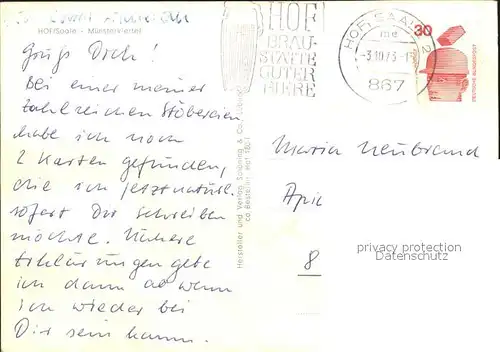 HOF/Saale - Münsterviertel
Grüß Dich!
Bei einer meiner
zahlreichen Stöbereien
habe ich noch
2 Karten gefunden,
die ich jetzt natürl.
sofort Dir schreiben
möchte. Nähere
Erklärungen gebe
ich dann ab wenn
ich wieder bei
Dir sein kann.
Hersteller und Verlag
& Co.
Bestellnr. Hof
HOF
BRAU-
STÄTTE
GUTER
BIERE
HOF, SAALE 2
me
-3.10.73-
867
30
DEUTSCHE BUNDESPOST
Maria Neubrand
8
privacy protection
Datenschutz